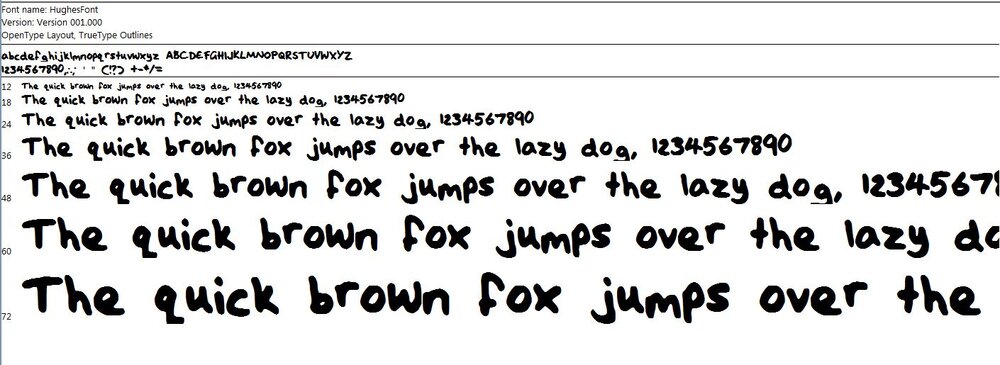 Font name: HughesFont
Version: Version 001.000
OpenType Layout, TrueType Outlines
abcdefghijklmnopqrstuvwxyz ABCDEFGHIJKLMNOPQRSTUVWXYZ
1234567890.:,; ' " (!?) +-*/=
12 The quick brown fox jumps over the lazy dog, 1234567890
18 The quick brown fox jumps over the lazy dog, 1234567890
24 The quick brown fox jumps over the lazy dog, 1234567890
36 The quick brown fox jumps over the lazy dog, 1234567890
48 The quick brown fox jumps over the lazy dog, 12345678
60 The quick brown fox jumps over the lazy do
72 The quick brown fox jumps over the